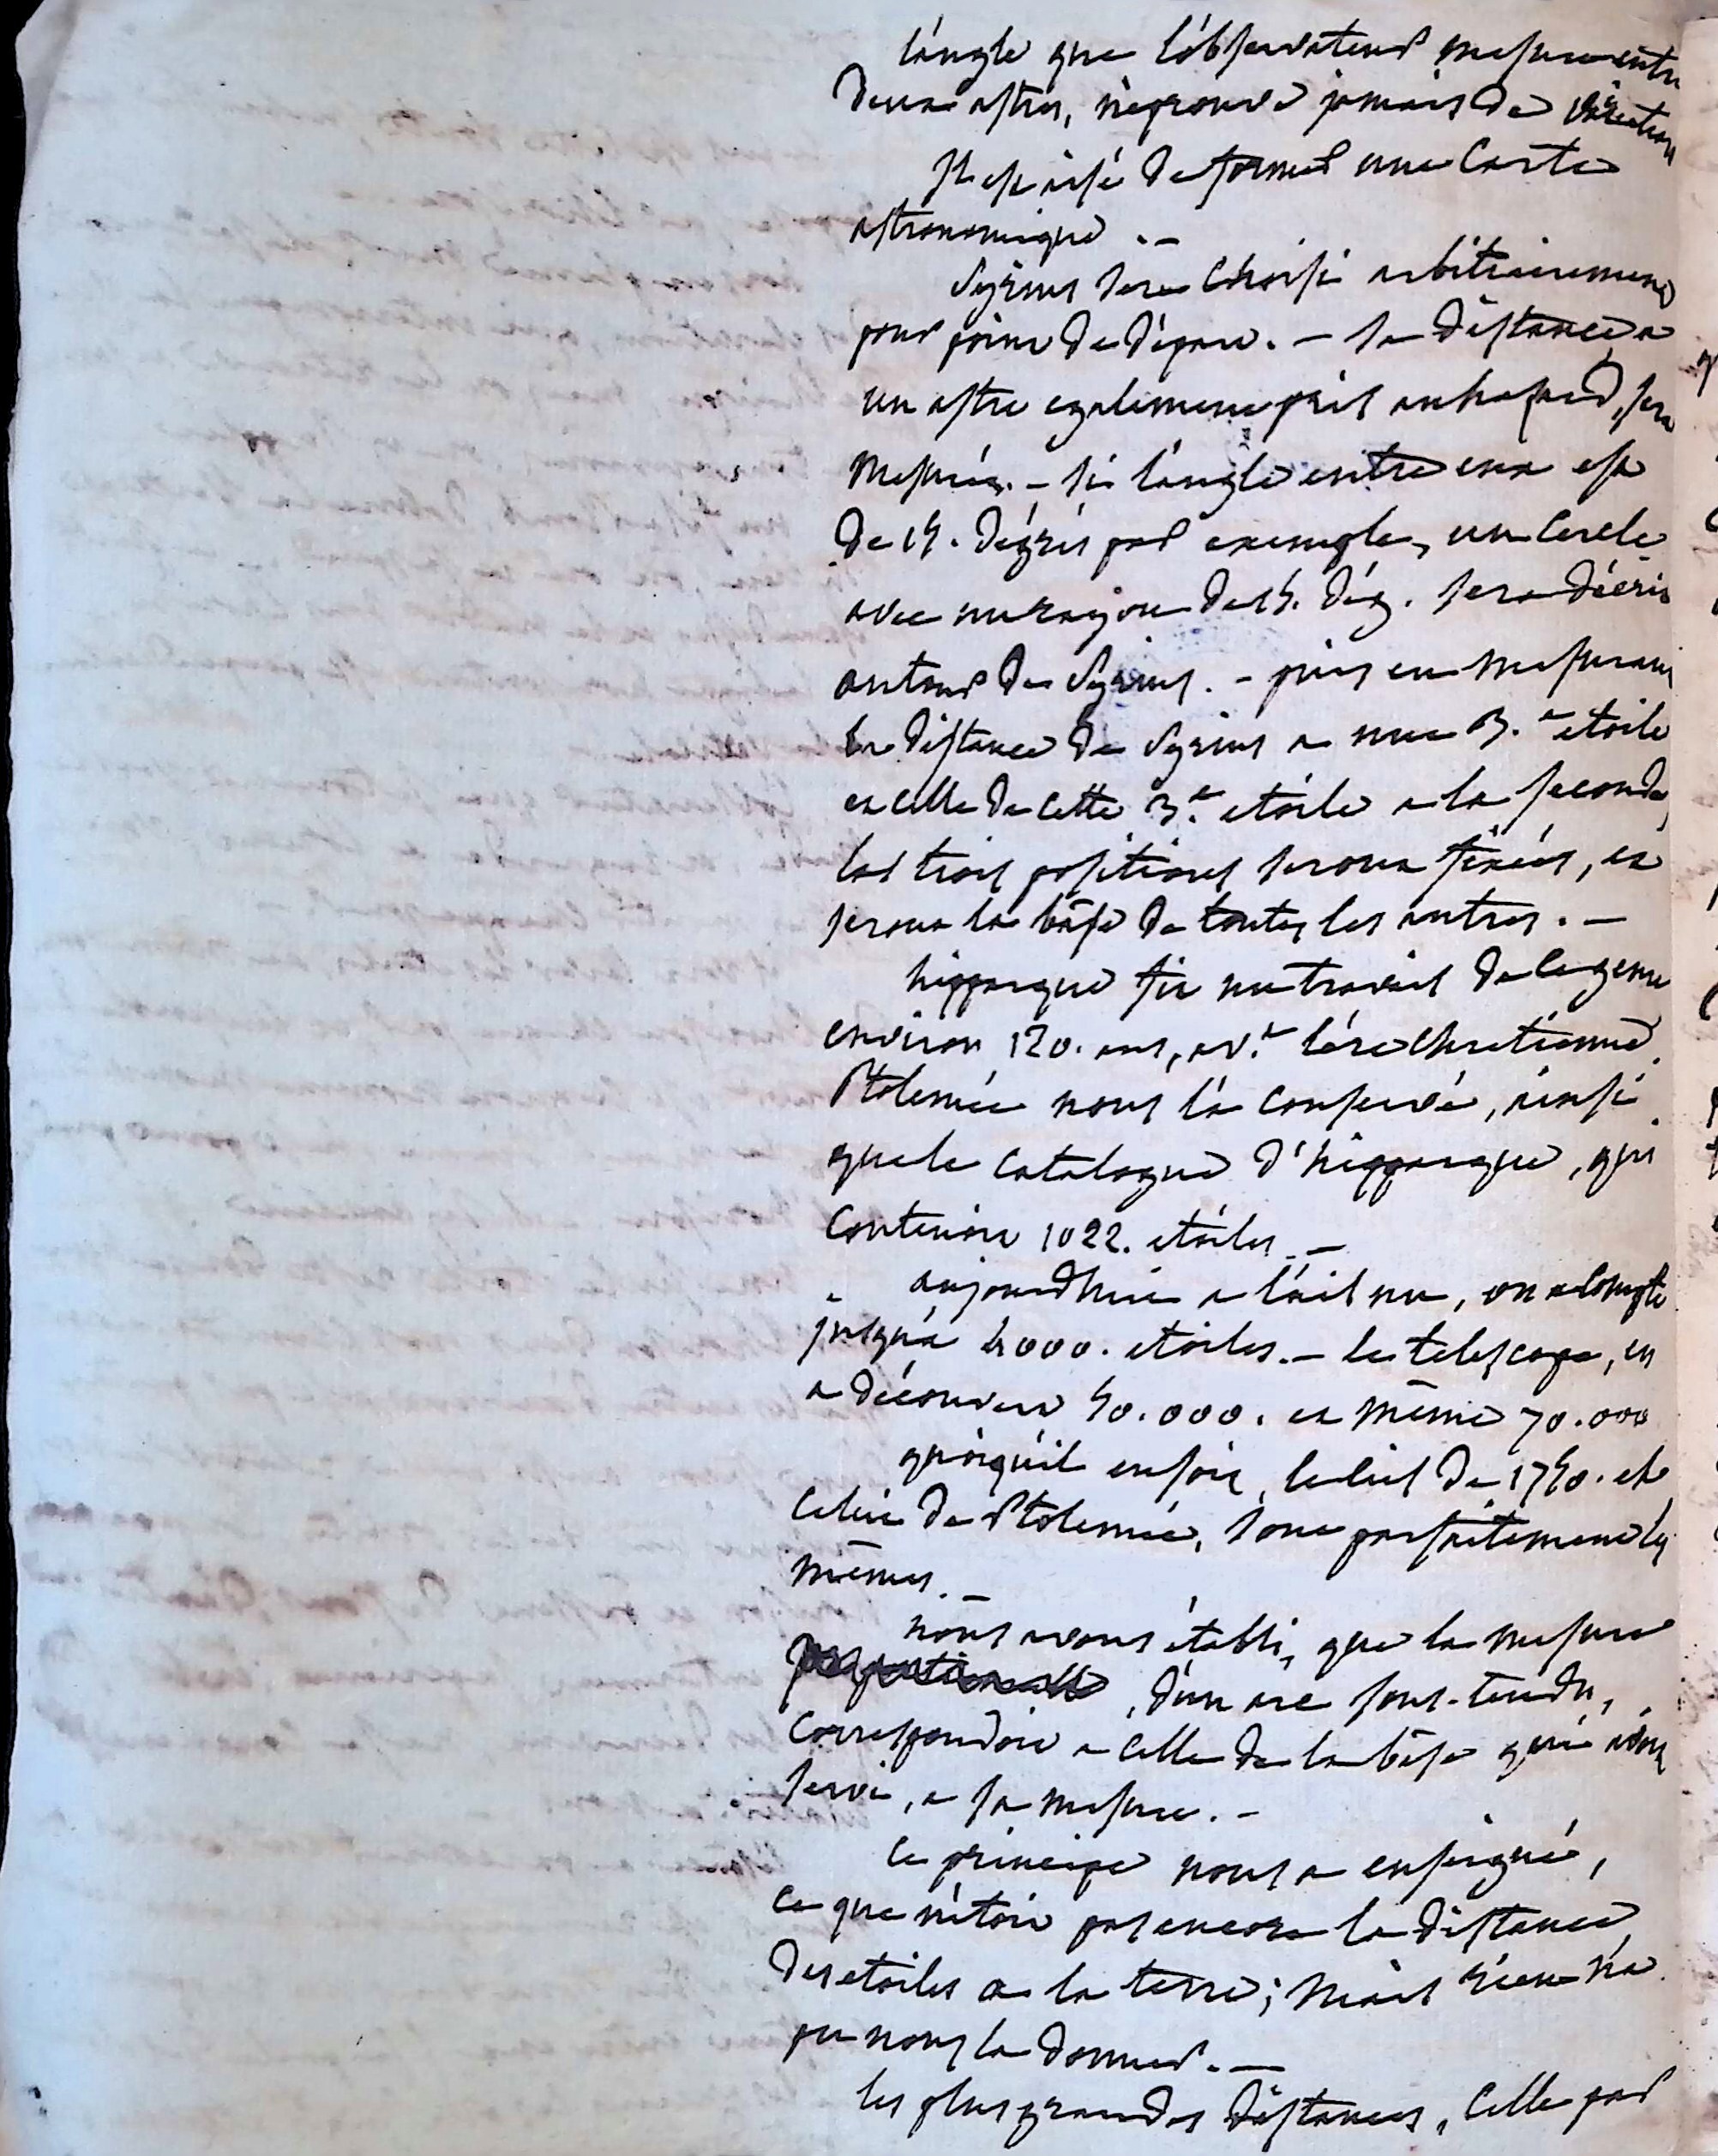 l'angle que l'observateur mesure entre
deux astres, n'eprouve jamais de variation
Il est aisé de former une Carte
astronomique . –
Syrius sera Choisi arbitrairement
pour point de départ. – sa distance a
un astre egalement pris au hasard, sera
Mesurée. – si l'angle entre eux est
de 15. dégrés par exemple, un Cercle
avec un rayon de 15. dég. sera décrit
autour de Syrius. – puis en mesurant
la distance de Syrius a une 3.e etoile
et Celle de Cette 3.e etoile a la seconde,
les trois positions seront fixées, et
seront la bâse de toutes les autres. –
hipparque fit un travail de Ce genre
environ 120. ans, av.t l'ére chretienne
Ptolemée nous l'a Conservé, ainsi
que le Catalogue d'hipparque, qui
Contenoit 1022. etoiles. –
aujourd'hui a l'œil nu, on a Compté
jusqu'a 4000. etoiles. – le telescope, en
a découvert 50.000. et même 70.000
quoiqu'il en soit, le Ciel de 1750. et
Celui de Ptolemée, sont parfaitement les
mêmes. –
nous avons établi, que la mesure
, d'un arc sous-tendu,
Correspondoit a Celle de la bâse qui avoit
servi, a sa mesure. –
Ce principe nous a enseigné,
Ce que n'étoit pas encore la distance
des etoiles a la terre; Mais rien n'a
pu nous la donner. –
les plus grandes distances, Celle par